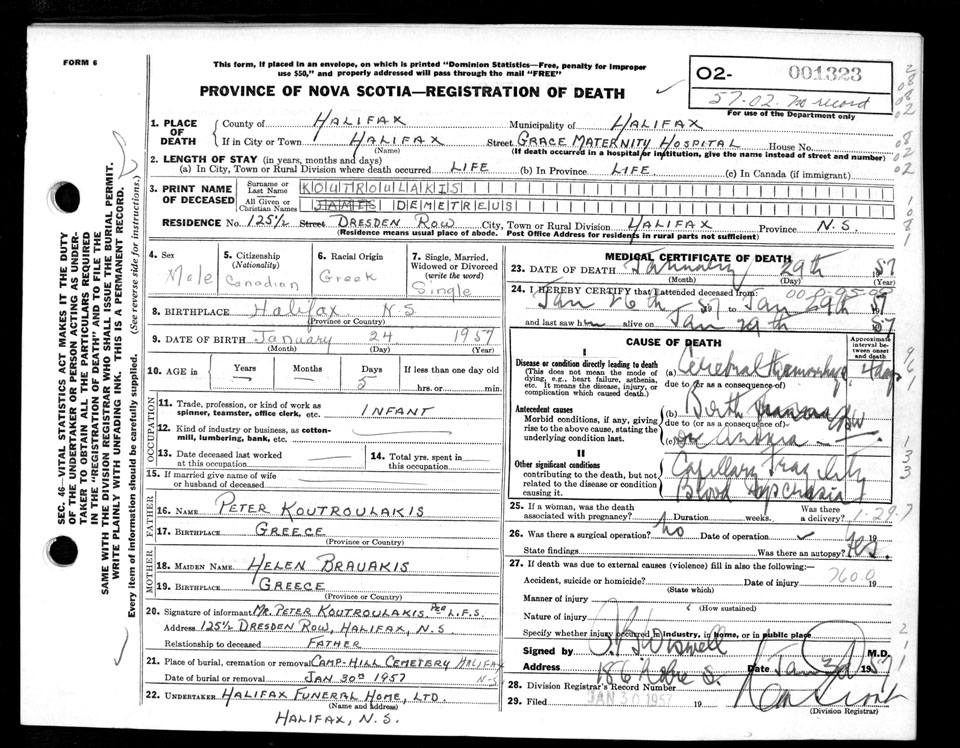 FORM 6
This form, if placed in an envelope, on which is printed "Dominion Statistics—Free, penalty for improper
use $50," and properly addressed will pass through the mail "FREE"
PROVINCE OF NOVA SCOTIA—REGISTRATION OF DEATH
02- 001323
57-02. no record
For use of the Department only
1. PLACE OF DEATH
County of HALIFAX Municipality of HALIFAX
If in City or Town HALIFAX Street GRACE MATERNITY HOSPITAL House No.
(Name) (If death occurred in a hospital or institution, give the name instead of street and number)
2. LENGTH OF STAY (in years, months and days)
(a) In City, Town or Rural Division where death occurred LIFE (b) In Province LIFE. (c) In Canada (if immigrant)
3. PRINT NAME OF DECEASED
Surname or Last Name KOUTROULAKIS
All Given or Christian Names JAMES DEMETREUS
RESIDENCE No. 125½ Street DRESDEN ROW City, Town or Rural Division HALIFAX Province N.S.
(Residence means usual place of abode. Post Office Address for residents in rural parts not sufficient)
4. Sex
Male
5. Citizenship
(Nationality)
Canadian
6. Racial Origin
Greek
7. Single, Married,
Widowed or Divorced
(write the word)
Single
8. BIRTHPLACE Halifax N.S.
(Province or Country)
9. DATE OF BIRTH January 24 1957
(Month) (Day) (Year)
10. AGE in Years Months Days If less than one day old
5 hrs. or min.
OCCUPATION
11. Trade, profession, or kind of work as
spinner, teamster, office clerk, etc. INFANT
12. Kind of industry or business, as cotton-
mill, lumbering, bank, etc.
13. Date deceased last worked
at this occupation
14. Total yrs. spent in
this occupation
15. If married give name of wife
or husband of deceased
FATHER
16. NAME PETER KOUTROULAKIS
17. BIRTHPLACE GREECE
(Province or Country)
MOTHER
18. MAIDEN NAME HELEN BRAUAKIS
19. BIRTHPLACE GREECE
(Province or Country)
20. Signature of informant MR. PETER KOUTROULAKIS. PER L.F.S.
Address 125½ DRESDEN ROW, HALIFAX, N.S.
Relationship to deceased FATHER
21. Place of burial, cremation or removal CAMP-HILL CEMETERY HALIFAX
Date of burial or removal JAN 30th 1957 N-S.
22. UNDERTAKER HALIFAX FUNERAL HOME, LTD.
(Name and address)
HALIFAX, N.S.
MEDICAL CERTIFICATE OF DEATH
23. DATE OF DEATH January 29th 1957
(Month) (Day) (Year)
24. I HEREBY CERTIFY that I attended deceased from:
Jan 26th 1957 to Jan 29th 1957
and last saw him alive on Jan 29th 1957
CAUSE OF DEATH
Approximate interval between onset and death
I
Disease or condition directly leading to death
(This does not mean the mode of
dying, e.g., heart failure, asthenia,
etc. It means the disease, injury, or
complication which caused death.)
(a) Cerebral Hemorrhage 4 days
due to (or as a consequence of)
Antecedent causes
Morbid conditions, if any, giving
rise to the above cause, stating the
underlying condition last.
(b) Birth
due to (or as a consequence of)
(c) or anoxia
II
Other significant conditions
contributing to the death, but not
related to the disease or condition
causing it.
Capillary Fragility
Blood Dyscrasia
25. If a woman, was the death
associated with pregnancy? Duration weeks. Was there
a delivery? 1-29-7
26. Was there a surgical operation? no Date of operation 19
State findings Was there an autopsy? Yes.
27. If death was due to external causes (violence) fill in also the following:
Accident, suicide or homicide? Date of injury 760.0 19
(State which)
Manner of injury
(How sustained)
Nature of injury
Specify whether injury occurred in industry, in home, or in public place
Signed by M.D.
Address Date Jan 30 1957
28. Division Registrar's Record Number
29. Filed JAN 30 1957 19
(Division Registrar)
SEC. 46—VITAL STATISTICS ACT MAKES IT THE DUTY
OF THE UNDERTAKER OR PERSON ACTING AS UNDER-
TAKER TO OBTAIN ALL THE PARTICULARS REQUIRED
IN THE "REGISTRATION OF DEATH" AND TO FILE THE
SAME WITH THE DIVISION REGISTRAR WHO SHALL ISSUE THE BURIAL PERMIT.
WRITE PLAINLY WITH UNFADING INK. THIS IS A PERMANENT RECORD.
Every item of information should be carefully supplied. (See reverse side for instructions.)